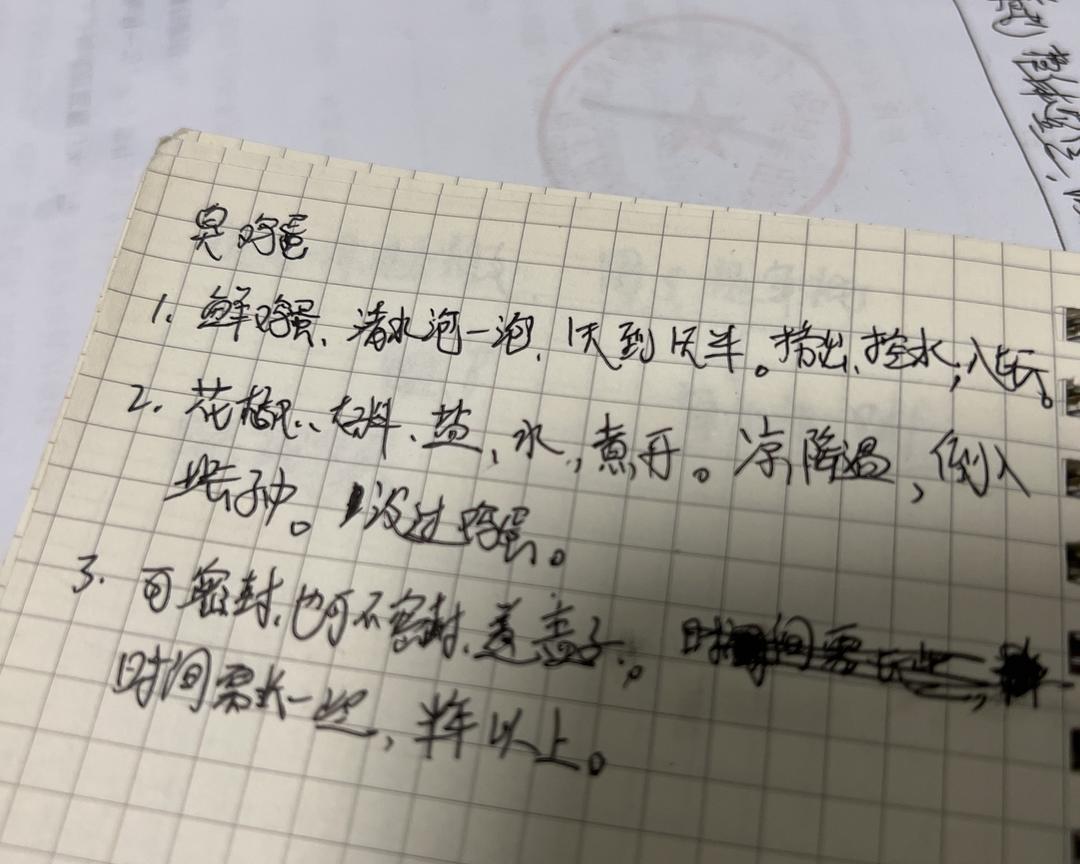 臭鸡蛋
1. 鲜鸡蛋、清水泡一泡、1天到1天半。捞出、控水,入坛。
2. 花椒、大料、盐,水,煮开。凉,降温,倒入
坛子中。没过鸡蛋。
3. 可密封,也可不密封、盖盖子。
时间需长一些,半年以上。